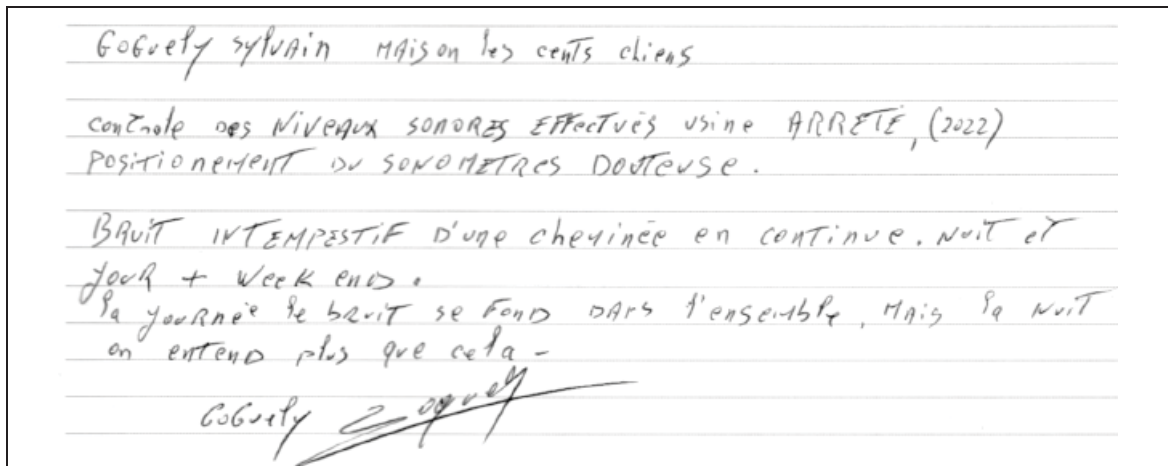 GOGUELY SYLVAIN MAISON les cents chiens
controle DES NIVEAUX SONORES EFFECTUÉS usine ARRETÉ, (2022)
POSITIONEMENT DU SONOMETRES DOUTEUSE.
BRUIT INTEMPESTIF D'une cheminée en continue. NUIT et
JOUR + Week END.
la JOURNÉE le bruit se FOND DANS l'ensemble, MAIS la NUIT
on entend plus que cela -
GOGUELY Goguely